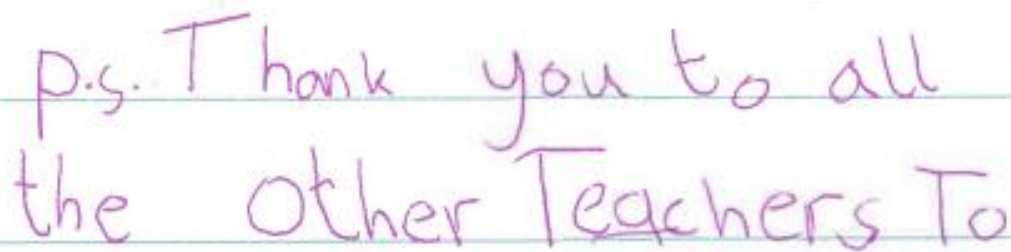 p.s. Thank you to all
the Other Teachers To